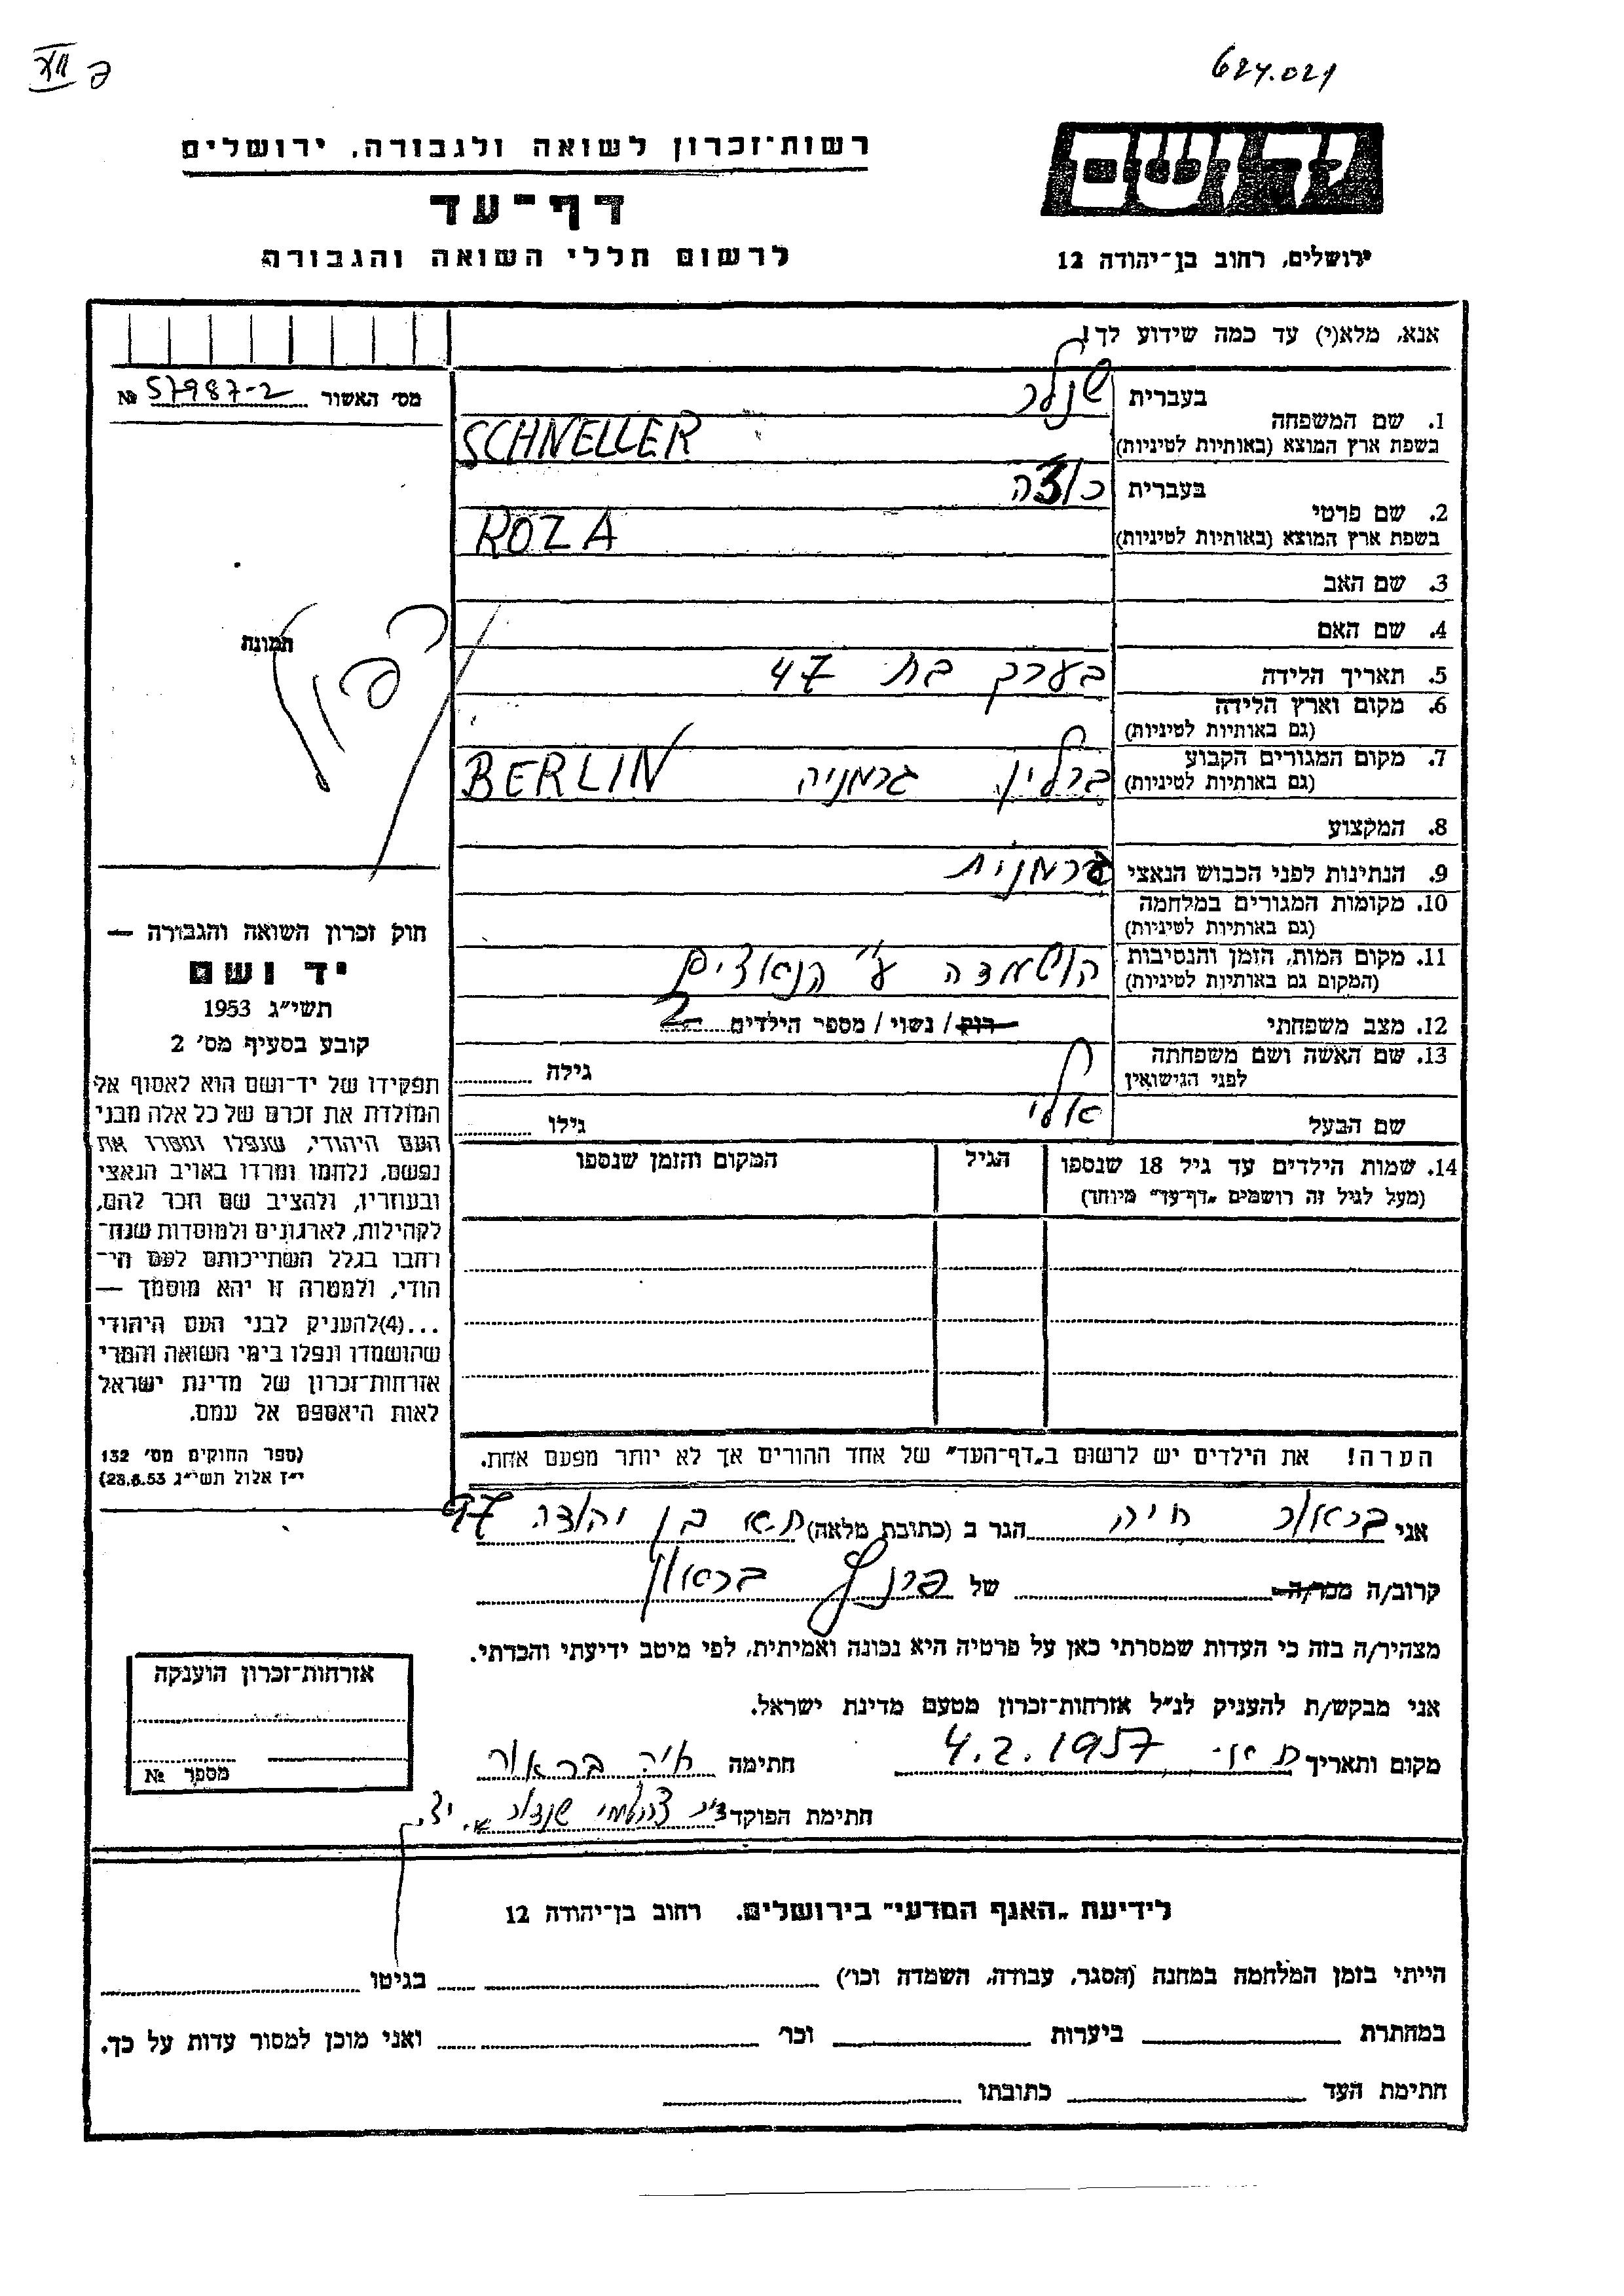 624.021
רשות־זכרון לשואה ולגבורה, ירושלים
יד ושם
דף־עד
לרשום חללי השואה והגבורה
ירושלים, רחוב בן־יהודה 12
אנא, מלא(י) עד כמה שידוע לך!
מס׳ האשור № 57987-2
בעברית שנלר
1. שם המשפחה
בשפת ארץ המוצא (באותיות לטיניות) SCHNELLER
בעברית רוזה
2. שם פרטי
בשפת ארץ המוצא (באותיות לטיניות) ROZA
3. שם האב
4. שם האם
תמונת
5. תאריך הלידה בערך בת 47
6. מקום וארץ הלידה
(גם באותיות לטיניות)
7. מקום המגורים הקבוע
(גם באותיות לטיניות) ברלין גרמניה BERLIN
8. המקצוע
9. הנתינות לפני הכבוש הנאצי גרמנית
10. מקומות המגורים במלחמה
(גם באותיות לטיניות)
11. מקום המות, הזמן והנסיבות
(המקום גם באותיות לטיניות) הושמדה ע״י הנאצים
12. מצב משפחתי רוק / נשוי / מספר הילדים 2
13. שם האשה ושם משפחתה
לפני הנישואין גילה
שם הבעל אלי גילו
14. שמות הילדים עד גיל 18 שנספו הגיל המקום והזמן שנספו
(מעל לגיל זה רושמים „דף־עד״ מיוחד)
הערה! את הילדים יש לרשום ב„דף־העד״ של אחד ההורים אך לא יותר מפעם אחת.
חוק זכרון השואה והגבורה —
יד ושם
תשי״ג 1953
קובע בסעיף מס׳ 2
תפקידו של יד־ושם הוא לאסוף אל
המולדת את זכרם של כל אלה מבני
העם היהודי, שנפלו ומסרו את
נפשם, נלחמו ומרדו באויב הנאצי
ובעוזריו, ולהציב שם וזכר להם,
לקהילות, לארגונים ולמוסדות שנח־
רחבו בגלל השתייכותם לעם הי־
הודי, ולמטרה זו יהא מוסמך —
...(4)להעניק לבני העם היהודי
שהושמדו ונפלו בימי השואה והמרי
אזרחות־זכרון של מדינת ישראל
לאות היאספם אל עמם.
(ספר החוקים מס׳ 132
י״ז אלול תשי״ג 28.8.53)
אני בראור חיה הגר ב (כתובת מלאה) ת״א בן יהודה 97
קרוב/ה מכר/ה של
מצהיר/ה בזה כי העדות שמסרתי כאן על פרטיה היא נכונה ואמיתית, לפי מיטב ידיעתי והכרתי.
אני מבקש/ת להעניק לנ״ל אזרחות־זכרון מטעם מדינת ישראל.
מקום ותאריך 4.2.1957 חתימה חיה בראור
חתימת הפוקד
אזרחות־זכרון הוענקה
מספר №
לידיעת „האגף המדעי״ בירושלים. רחוב בן־יהודה 12
הייתי בזמן המלחמה במחנה (הסגר, עבודה, השמדה וכו׳) בגיטו
במחתרת ביערות וכו׳ ואני מוכן למסור עדות על כך.
חתימת העד כתובתו